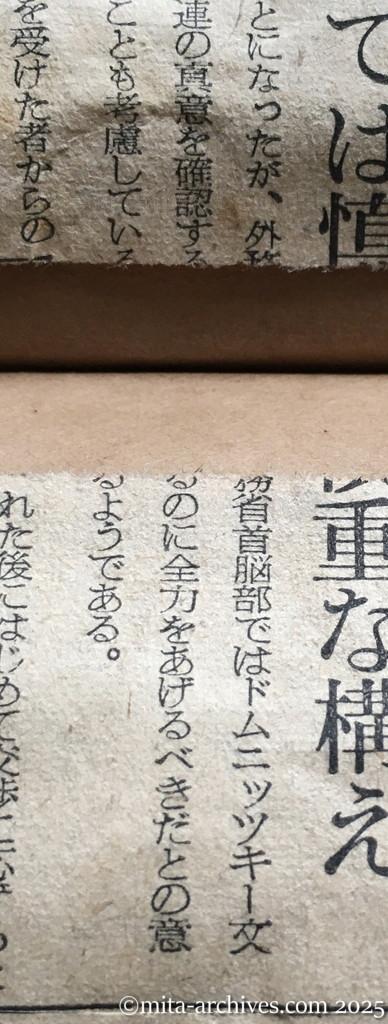 ては慎重な構え
とになったが、外務省首脳部ではドムニツキー文
連の真意を確認するのに全力をあげるべきだとの意
ことも考慮しているようである。
を受けた者からの
れた後にはじめて
©mita-archives.com 2025